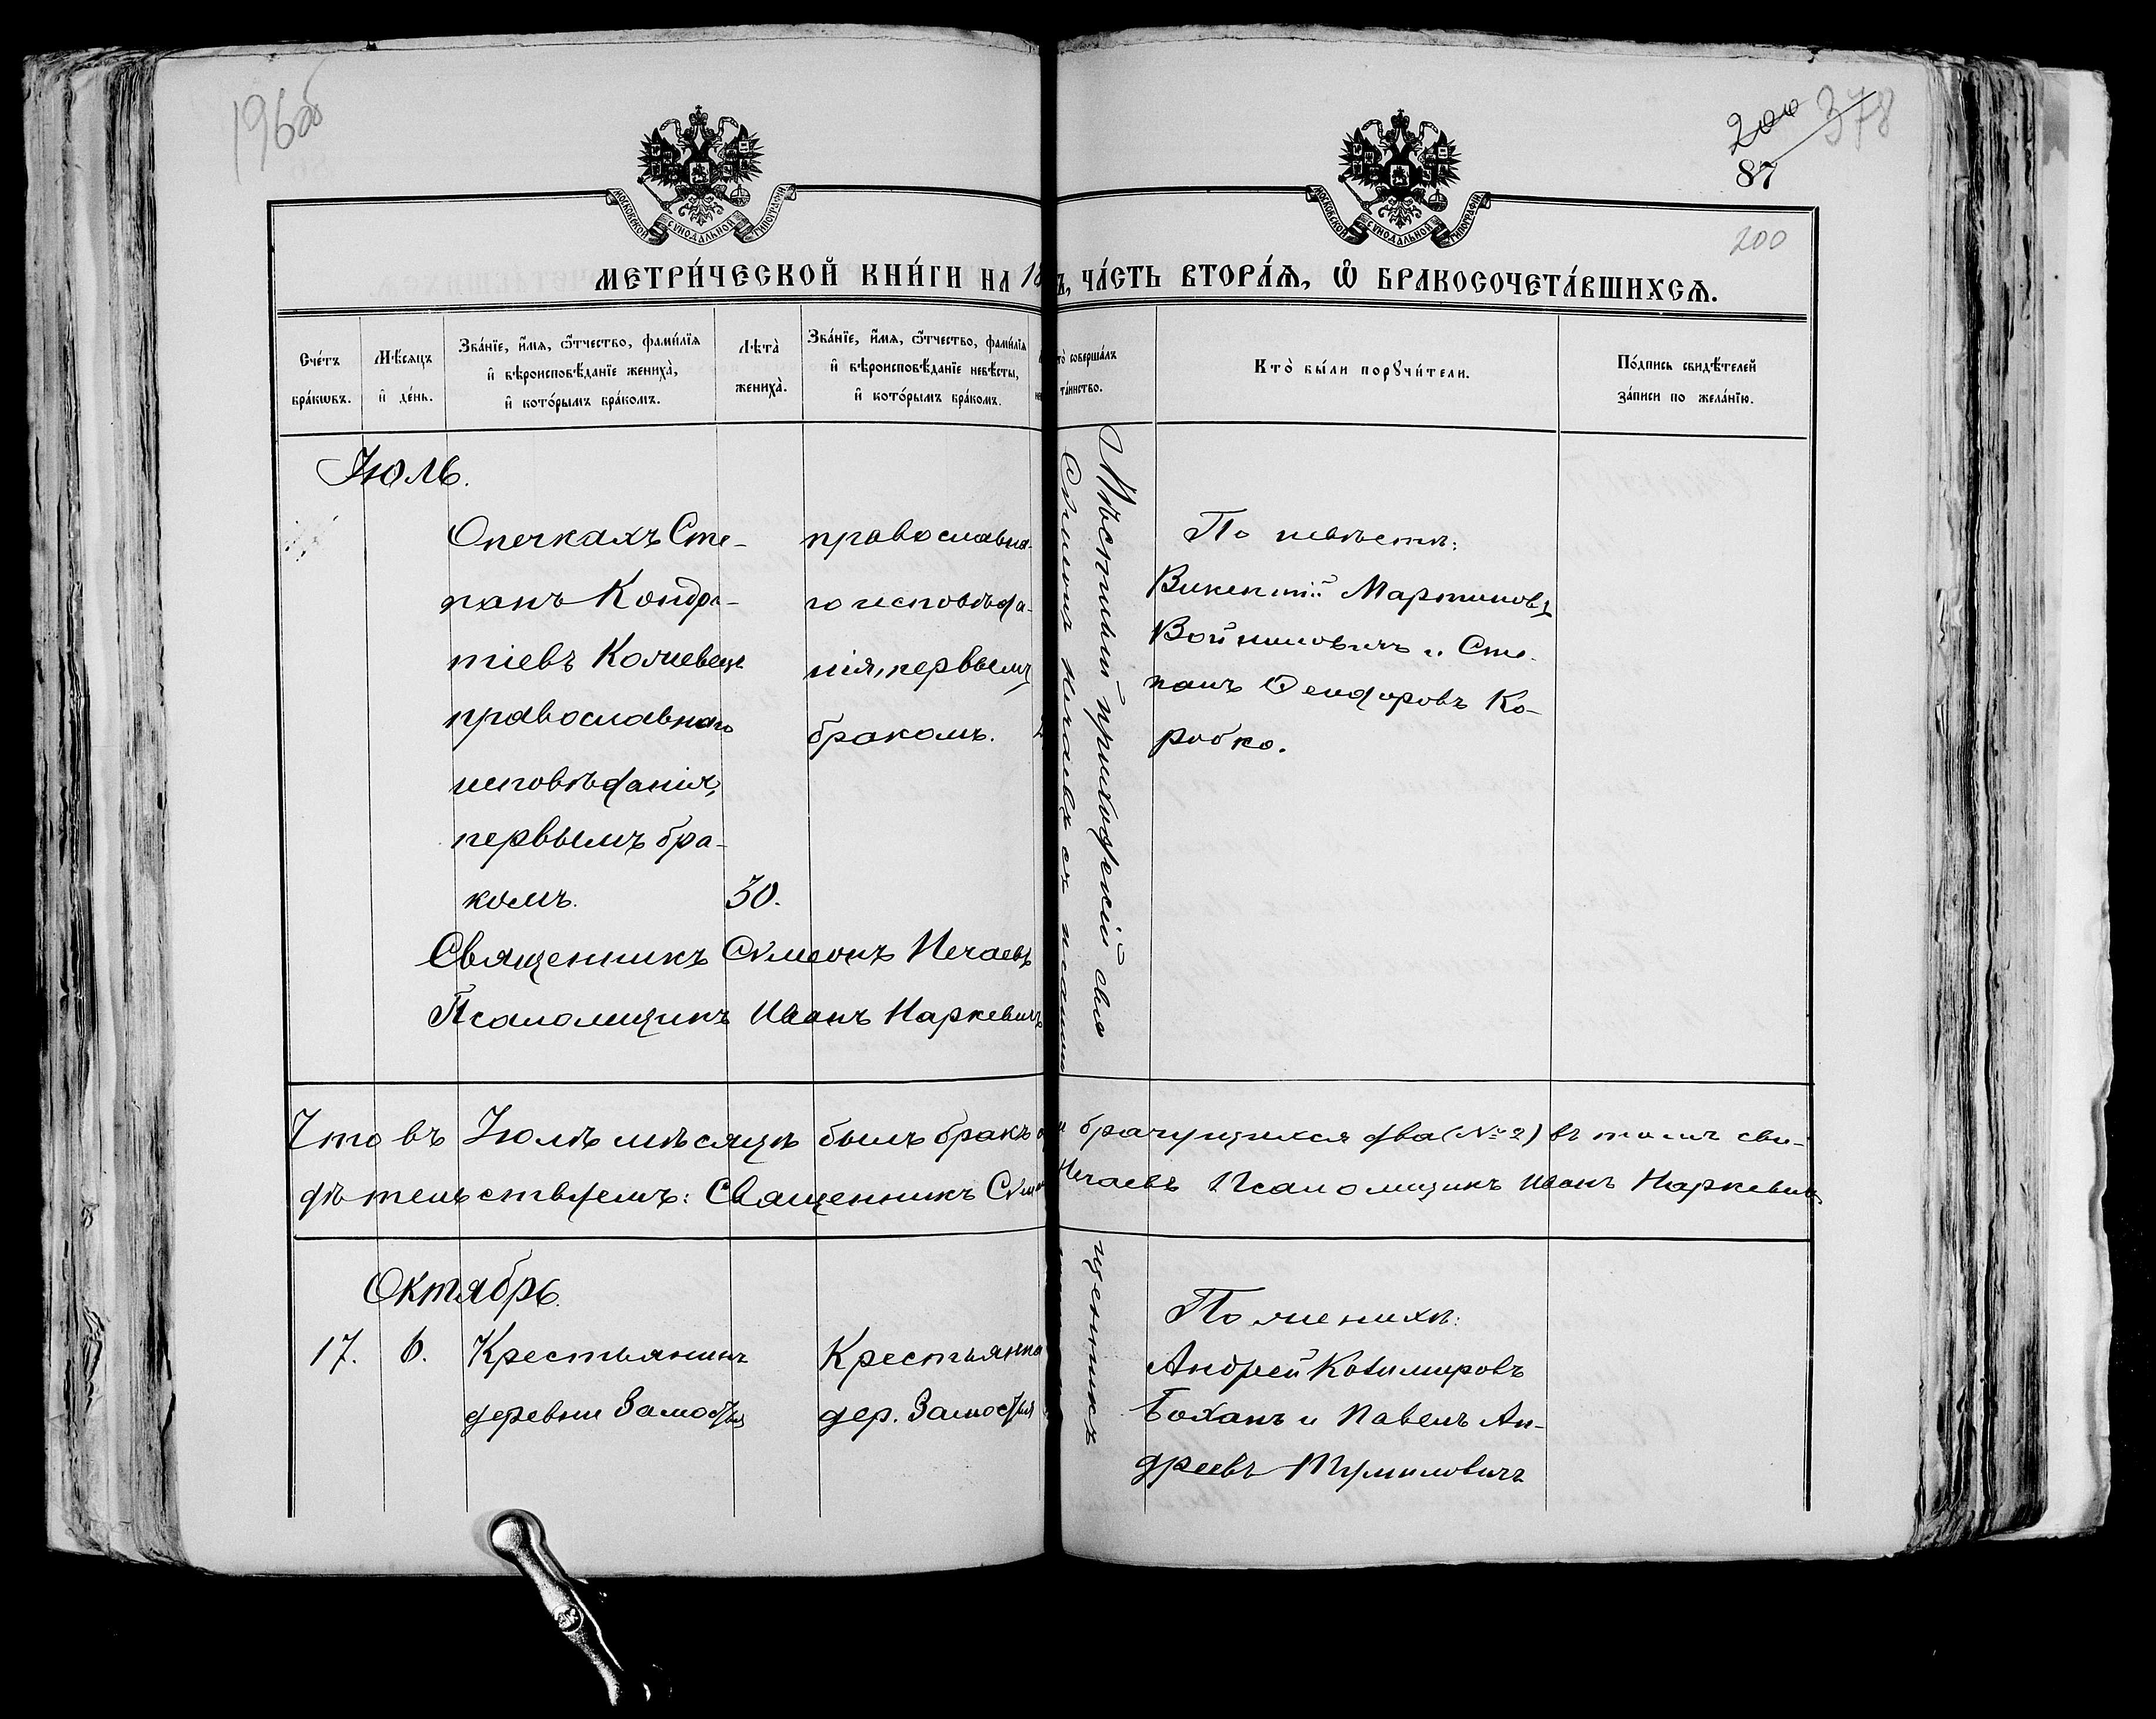 196об
200 378
87
200
МОСКОВСКОЙ СѴНОДАЛЬНОЙ ТИПОГРАФІИ
МОСКОВСКОЙ СѴНОДАЛЬНОЙ ТИПОГРАФІИ
МЕТРИ́ЧЕСКОЙ КНИ́ГИ НА 18
Ъ, ЧА́СТЬ ВТОРА́Ѧ, Ѽ БРАКОСОЧЕТА́ВШИХСѦ.
Сче́тъ бра́кѡвъ.
Мѣ́сяцъ и҆ де́нь.
Зва́нїе, и҆́мя, ѻ҆́тчество, фами́лїя и҆ вѣроисповѣ́данїе жениха̀, и҆ кото́рымъ бра́комъ.
Лѣта̀ жениха̀.
Зва́нїе, и҆́мя, ѻ҆́тчество, фами́лїя и҆ вѣроисповѣ́данїе невѣ́сты, и҆ кото́рымъ бра́комъ.
то̀ соверша́лъ та́инство.
Кто̀ бы́ли порꙋчи́тели.
По́дпись свидѣ́телей за́писи по жела́нїю.
Іюль.
Опечкахъ Сте-
панъ Кондра-
тіевъ
православнаго
исповѣданія,
первымъ бра-
комъ.
30.
православна-
го исповѣда-
нія, первымъ
бракомъ.
Мѣстный приходскій свя
Сѵмеонъ Нечаевъ съ псалом
По невѣстѣ:
Викентій Мартиновъ
Войниловичъ и Сте-
панъ Ѳеодоровъ Ко-
робко.
Священникъ Сѵмеонъ Нечаевъ
Псаломщикъ Иванъ Наркевичъ
Что въ Іюлѣ мѣсяцѣ былъ бракъ
и брачущихся два (№ 2) въ томъ сви-
дѣтельствуемъ: Священникъ Сѵмео
Нечаевъ Псаломщикъ Иванъ Наркевичъ
Октябрь.
17. 6. Крестьянинъ
деревни Замостья
Крестьянка
дер. Замостья
щенникъ
По женихѣ:
Андрей Казимировъ
Боханъ и Павелъ Ан-
дреевъ